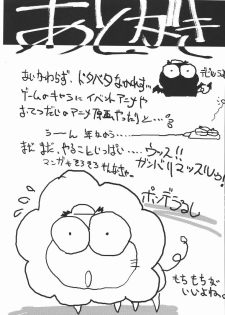 あとがき
あいかわらず、ドタバタなかれす…
ゲームのキャラに イベントアニメや
おてつだいのアニメ原画やったりと…
うーん 年ながら…
まだまだ、やることいっぱい…
ウッス!!
ガンバリマッスルゥ!
マンガもそろそろ
ポンデうるし
もちもちが
いいよね。